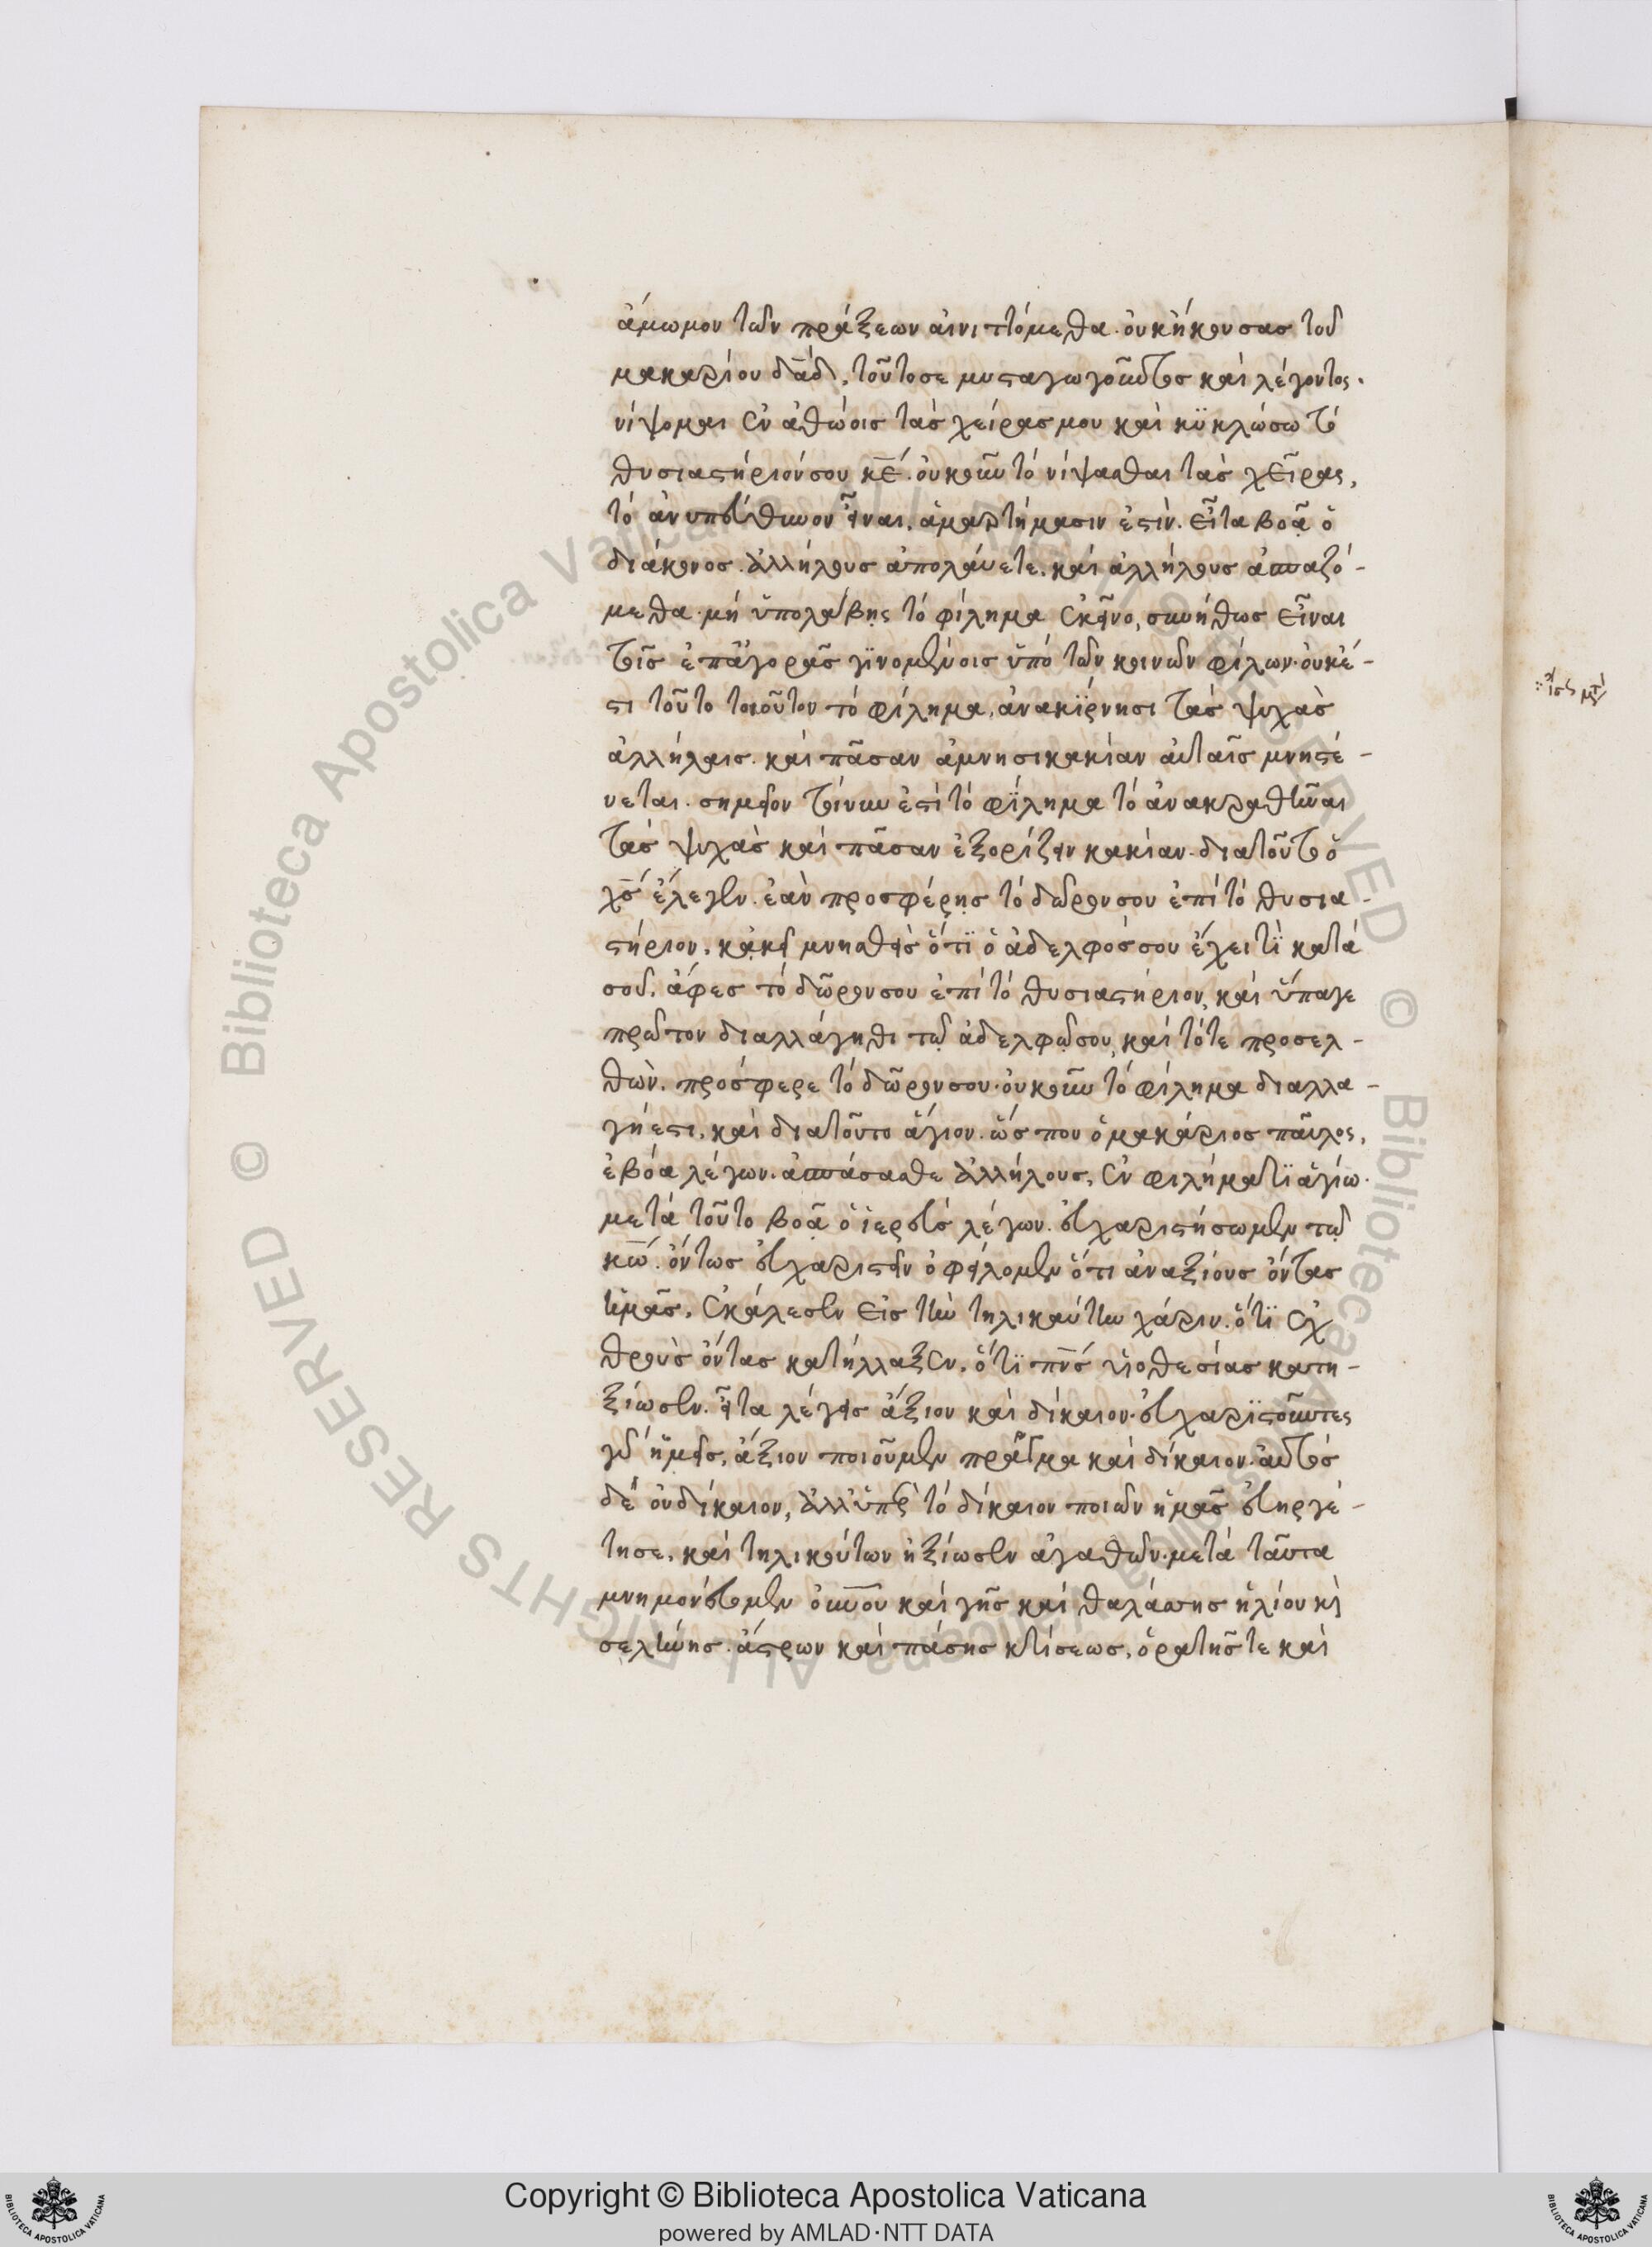 ἄμωμον τῶν πράξεων αἰνιττόμεθα. οὐκ ἤκουσας τοῦ
μακαρίου δᾱδ, τοῦτο σε μυσταγωγοῦντος καὶ λέγοντος.
νίψομαι ἐν ἀθώοις τὰς χεῖρας μου καὶ κϋκλώσω τὸ
θυσιαστήριόν σου κ̅ε̅. οὐκοῦν τὸ νίψασθαι τὰς χεῖρας,
τὸ ἀνυπεύθυνον εἶναι, ἁμαρτήμασιν ἐστὶν. εἶτα βοᾷ ὁ
διάκονος. ἀλλήλους ἀπολάβετε. καὶ ἀλλήλους ἀσπαζό-
μεθα. μὴ ὑπολάβῃς τὸ φίλημα ἐκεῖνο, συνήθως εἶναι
τοῖς ἐπ' ἀγορᾶς γϊνομένοις ὑπὸ τῶν κοινῶν φίλων. οὐκ ἔ-
στι τοῦτο τοιοῦτον τὸ φίλημα, ἀνακίρνησι τὰς ψυχὰς
ἀλλήλαις. καὶ πᾶσαν ἀμνησικακίαν αὐταῖς μνηστέ-
υεται. σημεῖον τοίνυν ἐστὶ τὸ φίλημα τὸ ἀνακραθῆναι
τὰς ψυχὰς καὶ πᾶσαν ἐξορίζειν κακίαν. διατοῦτο ὁ
χ̅ς̅ ἔλεγεν. ἐὰν προσφέρῃς τὸ δῶρον σου ἐπὶ τὸ θυσια-
στήριον, κἀκεῖ μνησθεῖς ὅτϊ ὁ ἀδελφός σου ἔχει τϊ κατὰ
σοῦ. ἄφες τὸ δῶρον σου ἐπὶ τὸ θυσιαστήριον, καὶ ὕπαγε
πρῶτον διαλλάγηθι τῷ ἀδελφῷ σου, καὶ τότε προσελ-
θὼν. πρόσφερε τὸ δῶρον σου. οὐκοῦν τὸ φίλημα διαλλα-
γή ἐστι, καὶ διατοῦτο ἅγιον. ὥς που ὁ μακάριος παῦλος,
ἐβόα λέγων. ἀσπάσασθε ἀλλήλους, ἐν φιλήματϊ ἁγίῳ.
μετὰ τοῦτο βοᾷ ὁ ἱερεὺς λέγων. εὐχαριστήσωμεν τῷ
κ̅ω̅. ὄντως εὐχαριστεῖν ὀφείλομεν ὅτι ἀναξίους ὄντας
ἡμᾶς, ἐκάλεσεν εἰς τὴν τηλικαύτην χάριν. ὅτϊ ἐχ
θροὺς ὄντας κατήλλαξεν. ὅτϊ π̅ν̅ς̅ υἱοθεσίας κατη-
ξίωσεν. εἶτα λέγεις ἄξιον καὶ δίκαιον. εὐχαρϊστοῦντες
γὰρ ἡμεῖς, ἄξιον ποιοῦμεν πρᾶγμα καὶ δίκαιον. αὐτὸς
δὲ οὐ δίκαιον, ἀλλ' ὑπὲρ τὸ δίκαιον ποιῶν ἡμᾶς εὐηργέ-
τησε, καὶ τηλικούτων ἠξίωσεν ἀγαθῶν. μετὰ ταῦτα
μνημονεύομεν ο̅υ̅ν̅ο̅υ̅ καὶ γῆς καὶ θαλάσσης ἡλίου κ̀
σελήνης. ἄστρων καὶ πάσης κτίσεως, ὁρατῆς τε καὶ
© Biblioteca Apostolica Vaticana ALL RIGHTS RESERVED
Copyright © Biblioteca Apostolica Vaticana
powered by AMLAD·NTT DATA
BIBLIOTECA APOSTOLICA VATICANA
BIBLIOTECA APOSTOLICA VATICANA